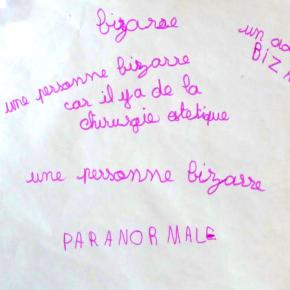 bizarre
une personne bizarre
car il y a de la
chirurgie estetique
un
BIZ
une personne bizarre
PARANORMALE